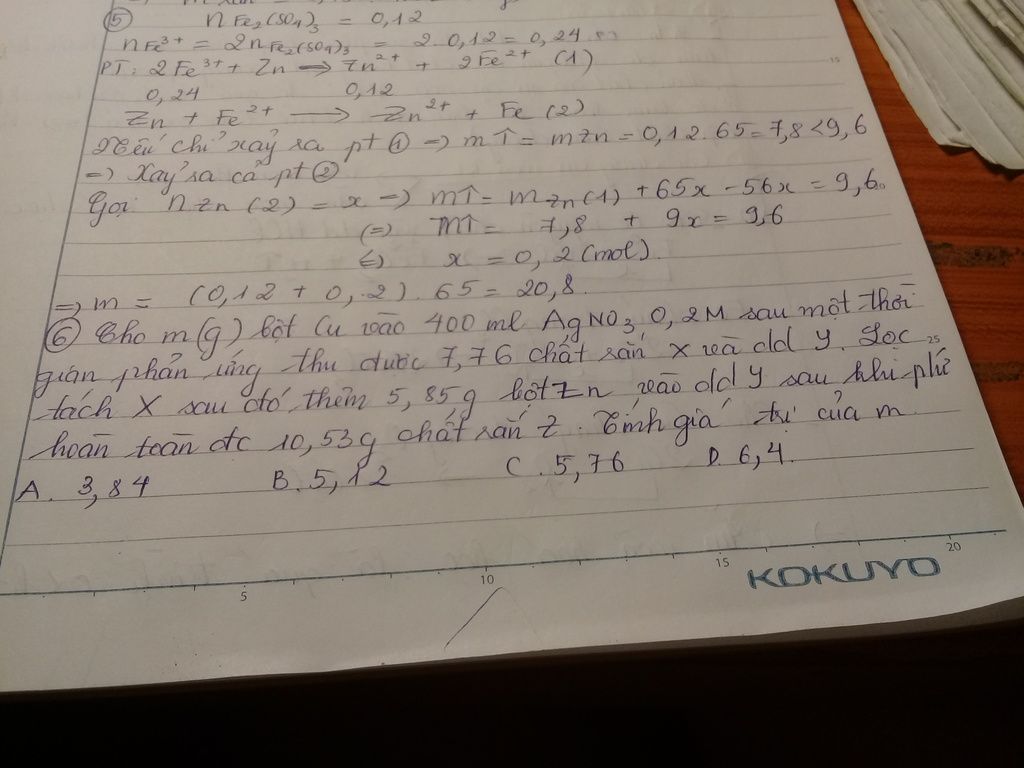 ⑤ nFe₂(SO₄)₃ = 0,12
nFe³⁺ = 2nFe₂(SO₄)₃ = 2.0,12 = 0,24
PT: 2Fe³⁺ + Zn → Zn²⁺ + 2Fe²⁺ (1)
0,24 0,12
Zn + Fe²⁺ → Zn²⁺ + Fe (2)
Nếu chỉ xảy ra pt ① => m↑ = mZn = 0,12.65 = 7,8 < 9,6
=> Xảy ra cả pt ②
Gọi nZn (2) = x => m↑ = mZn(1) + 65x - 56x = 9,6
(=) m↑ = 7,8 + 9x = 9,6
(=) x = 0,2 (mol).
=> m = (0,12 + 0,2). 65 = 20,8
⑥ Cho m(g) bột Cu vào 400 ml AgNO₃ 0,2M sau một thời
gian phản ứng thu được 7,76 chất rắn X và dd Y. Lọc
tách X sau đó thêm 5,85g bột Zn vào dd Y sau khi phứ
hoàn toàn đc 10,53g chất rắn Z. Tính giá trị của m
A. 3,84 B. 5,12 C. 5,76 D. 6,4.
5 10 15 20
KOKUYO